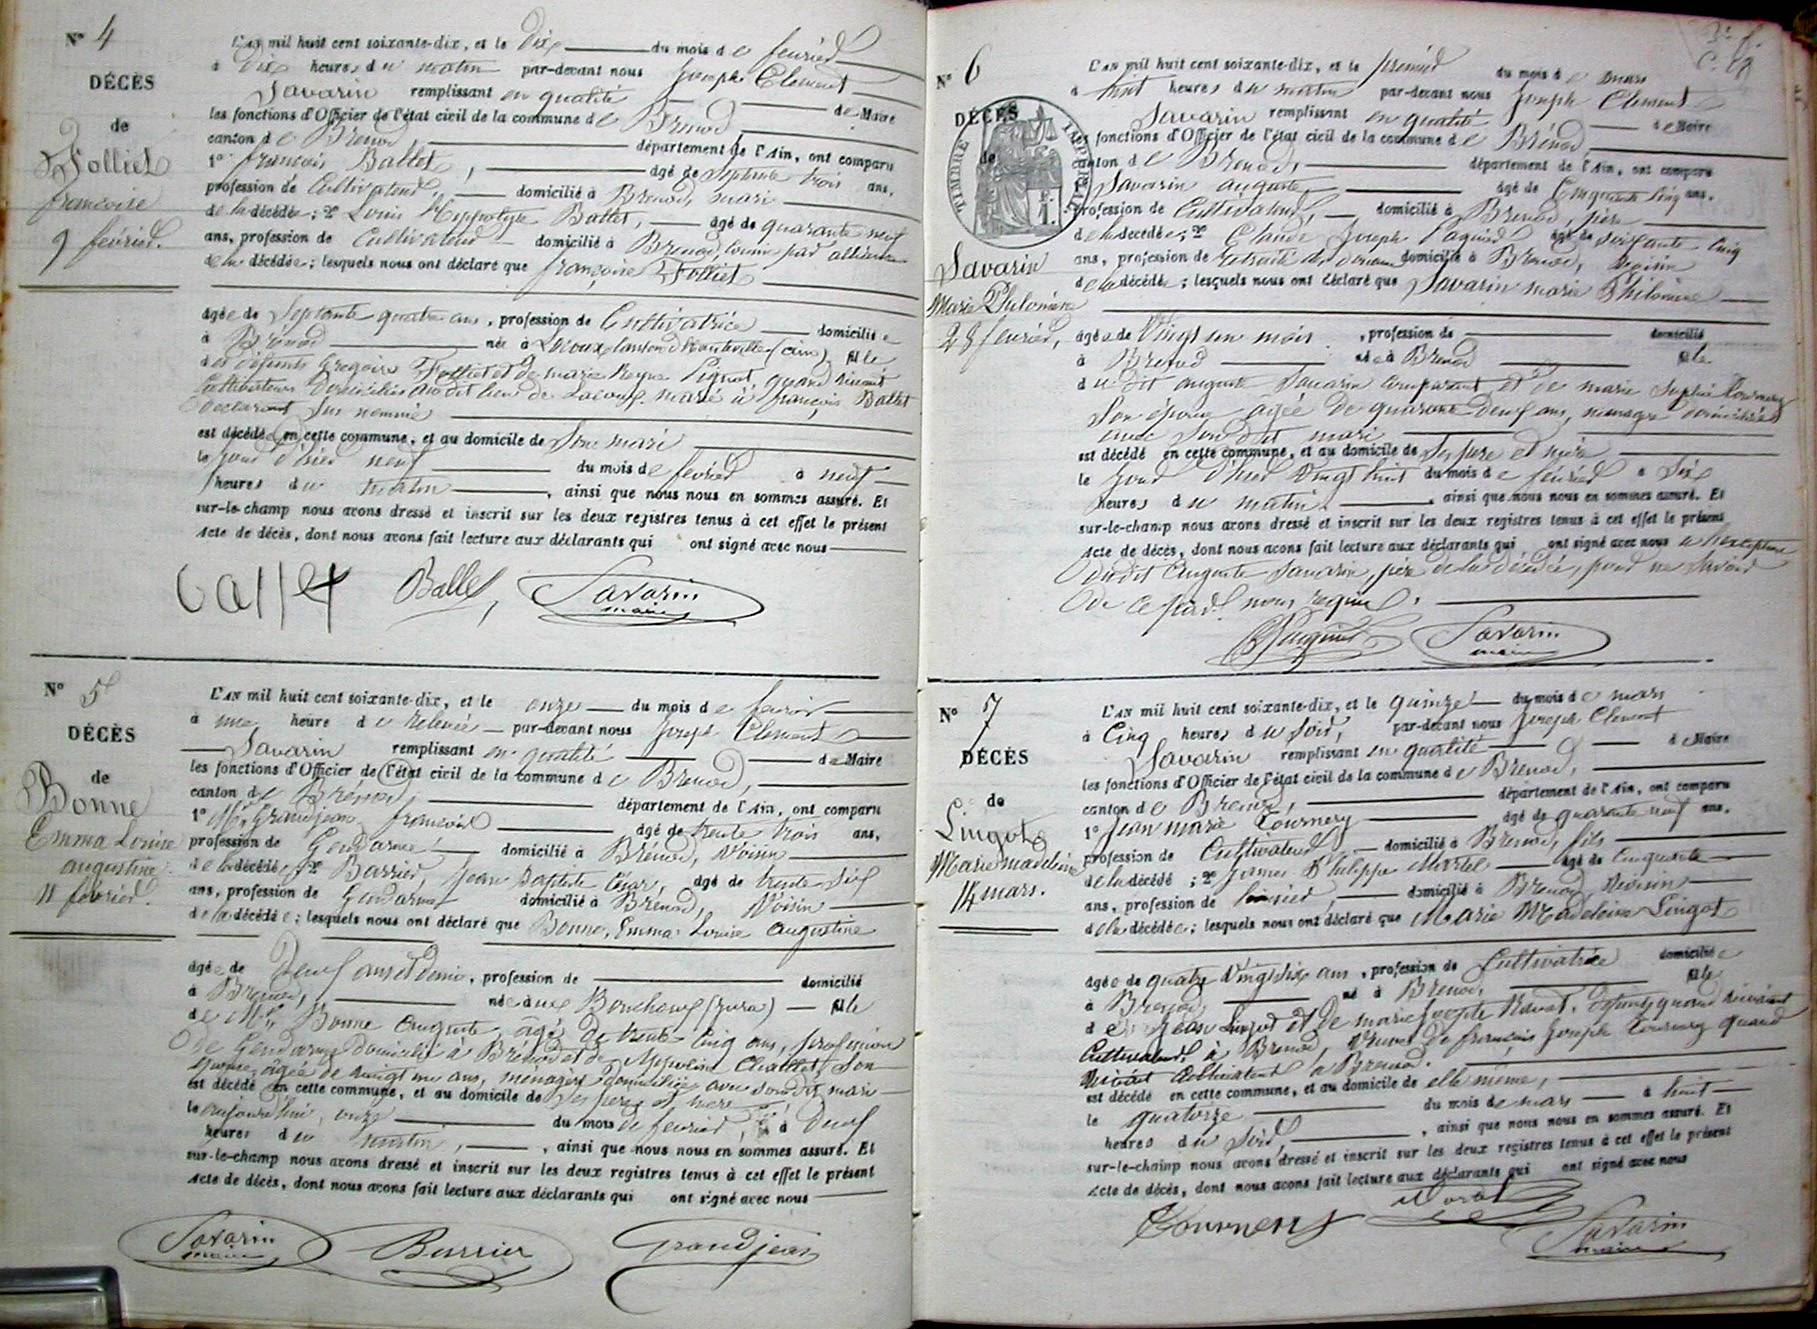 Nº 4
DÉCÈS
de
Folliet
françoise
9 février.
L'AN mil huit cent soixante-dix, et le dix du mois de février
à dix heures du matin par-devant nous Joseph Clément
Savarin remplissant en qualité de Maire
les fonctions d'Officier de l'état civil de la commune de Brenod
canton de Brenod département de l'Ain, ont comparu
1º françois Ballet, âgé de septante trois ans,
profession de Cultivateur, domicilié à Brenod, mari
de la décédée; 2º Louis Hyppolyte Ballet, âgé de quarante neuf
ans, profession de Cultivateur domicilié à Brenod, cousin par alliance
de la décédée; lesquels nous ont déclaré que françoise Folliet
âgée de Septante quatre ans, profession de Cultivatrice domiciliée
à Brénod née à Lacoux, canton d'hauteville (ain) fille
des défunts Gregoire Folliet et de marie Reyne Pignet, quand vivaient
cultivateurs domiciliés au dit lieu de Lacoux. marié à françois Ballet
déclarant sus nommé
est décédée en cette commune, et au domicile de Son mari
le jour d'hier neuf du mois de février à neuf
heures du matin, ainsi que nous nous en sommes assuré. Et
sur-le-champ nous avons dressé et inscrit sur les deux registres tenus à cet effet le présent
acte de décès, dont nous avons fait lecture aux déclarants qui ont signé avec nous
Ballet Ballet, Savarin
maire
Nº 5
DÉCÈS
de
Bonne
Emma Louise
augustine
11 février.
L'AN mil huit cent soixante-dix, et le onze du mois de février
à une heure de relevée par-devant nous Joseph Clément
Savarin remplissant en qualité de Maire
les fonctions d'Officier de l'état civil de la commune de Brenod,
canton de Brénod, département de l'Ain, ont comparu
1º Mr. Grandjean françois âgé de trente trois ans,
profession de Gendarme domicilié à Brénod, Voisin
de la décédée 2º Barrier, Jean Baptiste César, âgé de trente six
ans, profession de Gendarme domicilié à Brenod, Voisin
de la décédée; lesquels nous ont déclaré que Bonne, Emma Louise augustine
âgée de Deux ans et demi, profession de domicilié
à Brenod, née aux Bouchoux (Jura) fille
de Mr. Bonne auguste, âgé de trente cinq ans, profession
de Gendarme domicilié à Brénod et de Appoline Challet son
épouse, agée de vingt un ans, ménagère domiciliée avec son dit mari
est décédé en cette commune, et au domicile de ses père et mère
le aujourd'hui, onze du mois de février, à Deux
heures du matin, ainsi que nous nous en sommes assuré. Et
sur-le-champ nous avons dressé et inscrit sur les deux registres tenus à cet effet le présent
acte de décès, dont nous avons fait lecture aux déclarants qui ont signé avec nous
Savarin Barrier Grandjean
maire
Nº 6
DÉCÈS
de
TIMBRE IMPÉRIAL
Savarin
Marie Philomène
28 février,
L'AN mil huit cent soixante-dix, et le premier du mois de mars
à huit heures du matin par-devant nous Joseph Clément
Savarin remplissant en qualité de Maire
les fonctions d'Officier de l'état civil de la commune de Brénod
canton de Brenod, département de l'Ain, ont comparu
Savarin auguste, âgé de Cinquante cinq ans,
profession de Cultivateur, domicilié à Brenod, père
de la décédée; 2º Claude Joseph âgé de soixante cinq
ans, profession de retraité des douanes domicilié à Brenod, voisin
de la décédée; lesquels nous ont déclaré que Savarin marie Philomène
âgée de Vingt un mois, profession de domicilié
à Brenod née à Brenod fille
du dit auguste Savarin comparant et de marie Sophie Tournery
Son épouse agée de quarante deux ans, ménagère domiciliée
avec son dit mari
est décédé en cette commune, et au domicile de Ses père et mère
le jour d'hier Vingt huit du mois de février à Six
heures du matin, ainsi que nous nous en sommes assuré. Et
sur-le-champ nous avons dressé et inscrit sur les deux registres tenus à cet effet le présent
acte de décès, dont nous avons fait lecture aux déclarants qui ont signé avec nous à l'exception
du dit Auguste Savarin, père de la décédée, pour ne savoir
de ce par nous requis.
Savarin
maire
Nº 7
DÉCÈS
de
Lingot
Marie madeleine
14 mars.
L'AN mil huit cent soixante-dix, et le quinze du mois de mars
à Cinq heures du soir, par-devant nous Joseph Clément
Savarin remplissant en qualité de Maire
les fonctions d'Officier de l'état civil de la commune de Brenod,
canton de Brenod, département de l'Ain, ont comparu
1º Jean marie Tournery âgé de quarante neuf ans,
profession de Cultivateur domicilié à Brenod, fils
de la décédé; 2º James Philippe âgé de Cinquante
ans, profession de domicilié à Brenod, Voisin
de la décédée; lesquels nous ont déclaré que Marie Madeleine Lingot
âgée de quatre Vingt dix ans, profession de Cultivatrice domiciliée
à Brenod né à Brenod, fille
de Jean Lingot et de marie Josephte Ravat, défunts, quand vivaient
Cultivateurs à Brenod, veuve de françois Joseph Tournery quand
vivait cultivateur à Brenod.
est décédé en cette commune, et au domicile de elle même,
le quatorze du mois de mars à huit
heures du soir, ainsi que nous nous en sommes assuré. Et
sur-le-champ nous avons dressé et inscrit sur les deux registres tenus à cet effet le présent
acte de décès, dont nous avons fait lecture aux déclarants qui ont signé avec nous
Tournery Savarin
maire